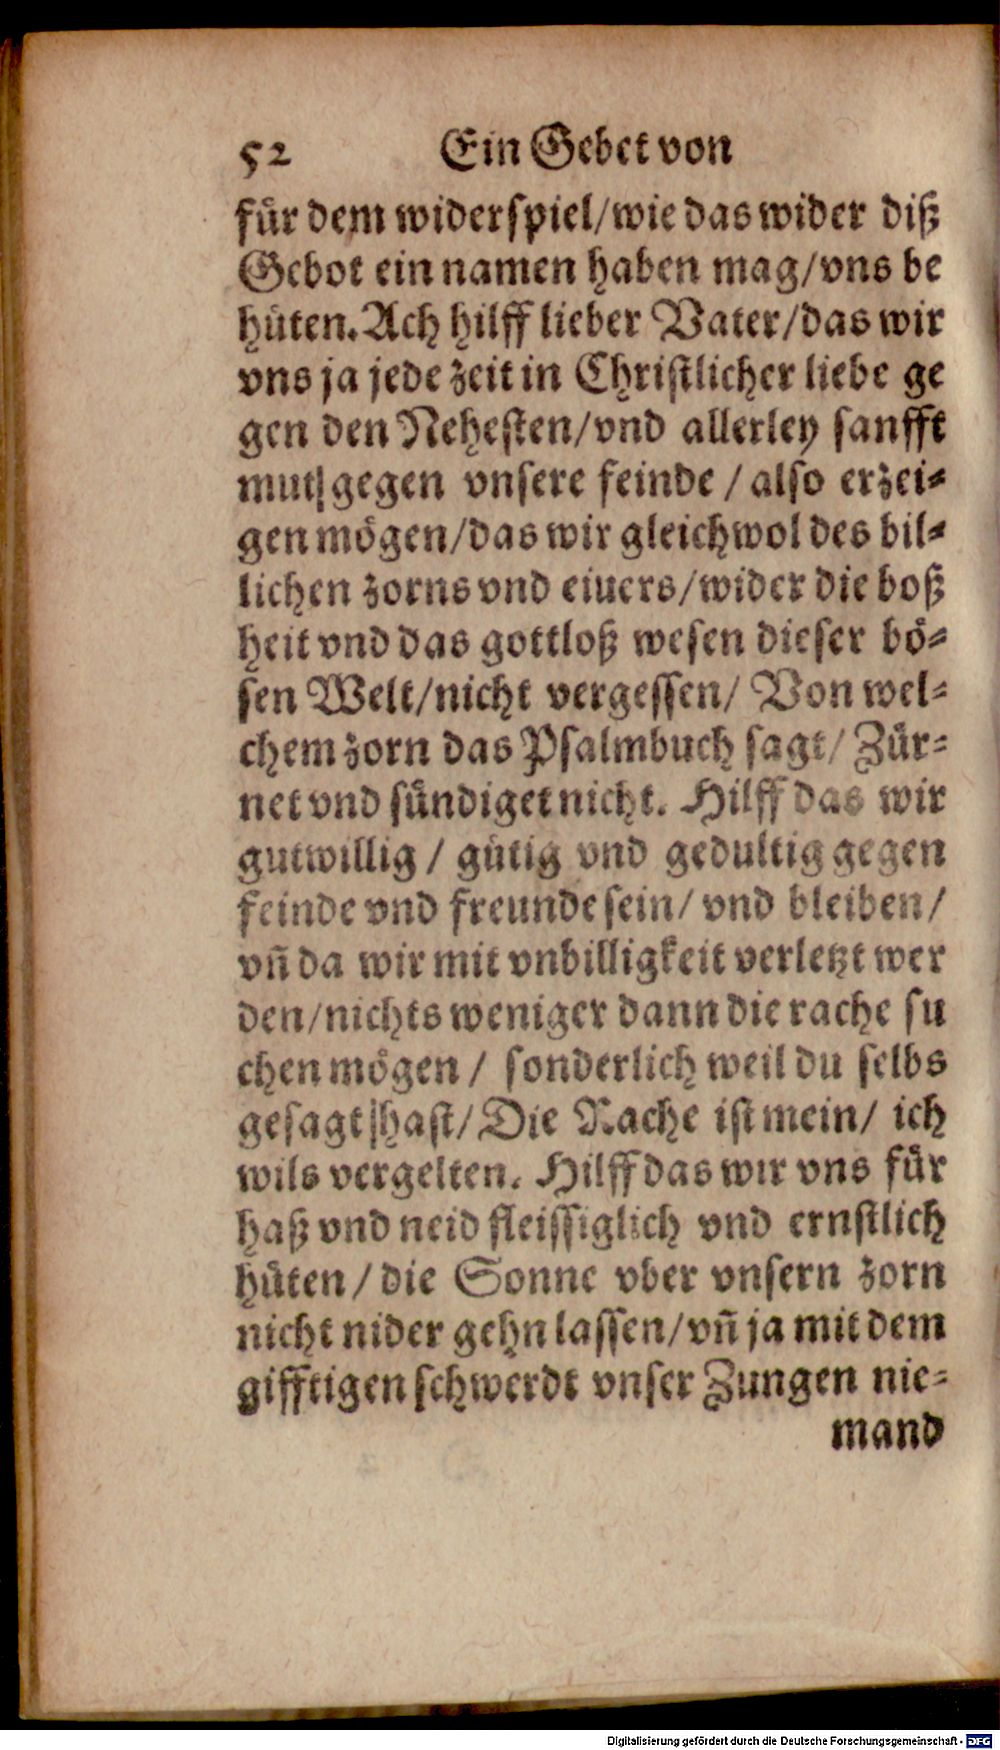 52 Ein Gebet von
für dem widerspiel/wie das wider diß
Gebot ein namen haben mag/vns be
hüten. Ach hilff lieber Vater/das wir
vns ja jede zeit in Christlicher liebe ge
gen den Nehesten/vnd allerley sanfft
mut|gegen vnsere feinde / also erzei-
gen mögen/das wir gleichwol des bil-
lichen zorns vnd eiuers/wider die boß
heit vnd das gottloß wesen dieser bö-
sen Welt/nicht vergessen/ Von wel-
chem zorn das Psalmbuch sagt/ Zür-
net vnd sündiget nicht. Hilff das wir
gutwillig / gütig vnd gedultig gegen
feinde vnd freunde sein/ vnd bleiben/
vñ da wir mit vnbilligkeit verletzt wer
den/nichts weniger dann die rache su
chen mögen / sonderlich weil du selbs
gesagt|hast/Die Rache ist mein/ ich
wils vergelten. Hilff das wir vns für
haß vnd neid fleissiglich vnd ernstlich
hüten/ die Sonne vber vnsern zorn
nicht nider gehn lassen/vñ ja mit dem
gifftigen schwerdt vnser Zungen nie-
mand
Digitalisierung gefördert durch die Deutsche Forschungsgemeinschaft - DFG